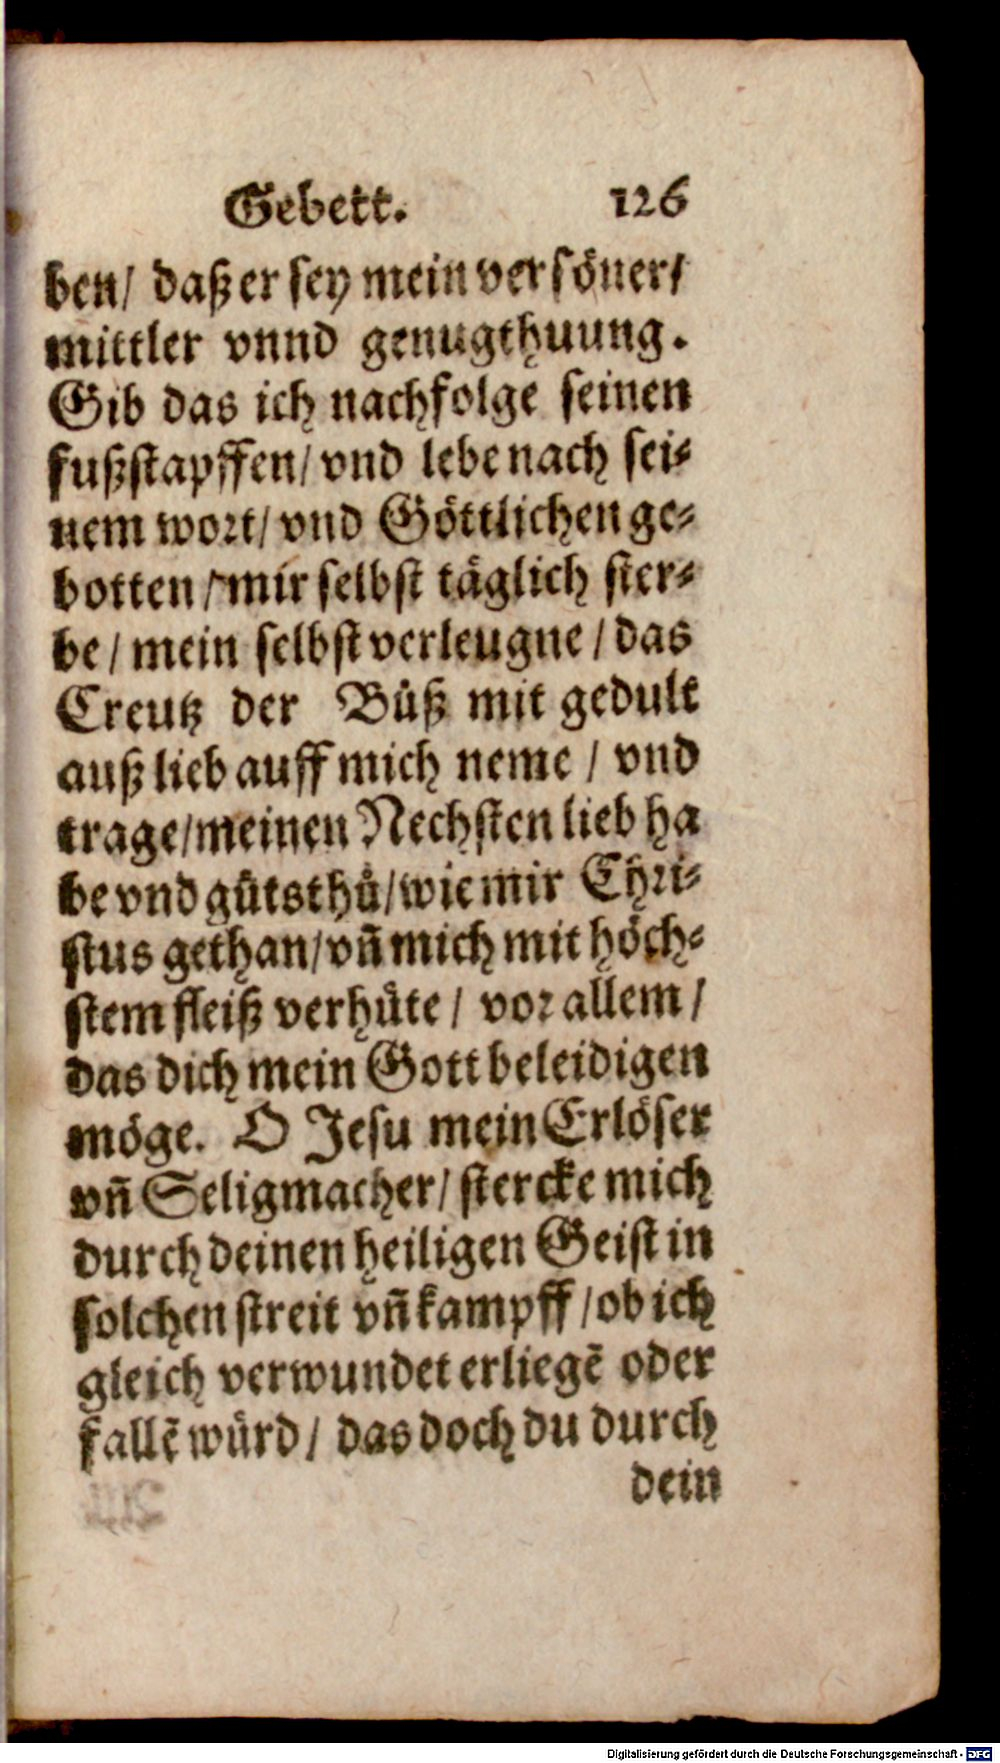 Gebett. 126
ben/ daß er sey mein versöner/
mittler vnnd genugthuung.
Gib das ich nachfolge seinen
fußstapffen/ vnd lebe nach sei-
nem wort/ vnd Göttlichen ge-
botten / mir selbst täglich ster-
be / mein selbst verleugne / das
Creutz der Büß mit gedult
auß lieb auff mich neme / vnd
trage/meinen Nechsten lieb ha
be vnd gütsthů/wie mir Chri-
stus gethan/vñ mich mit höch-
stem fleiß verhüte / vor allem /
das dich mein Gott beleidigen
möge. O Jesu mein Erlöser
vñ Seligmacher/ stercke mich
durch deinen heiligen Geist in
solchen streit vñ kampff /ob ich
gleich verwundet erliegē oder
fallē würd / das doch du durch
dein
Digitalisierung gefördert durch die Deutsche Forschungsgemeinschaft - DFG